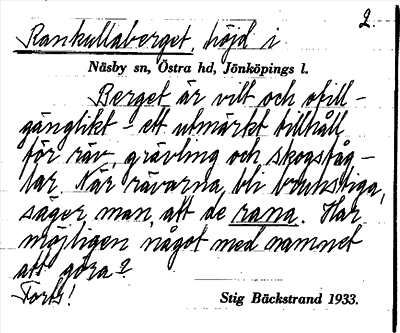 2.
Rankullaberget, höjd i
Näsby sn, Östra hd, Jönköpings l.
Berget är vilt och otill-
gängligt - ett utmärkt tillhåll
för räv, grävling och skogsfåg-
lar. När rävarna bli brunstiga,
säger man, att de rana. Har
möjligen något med namnet
att göra?
Forts!
Stig Bäckstrand 1933.